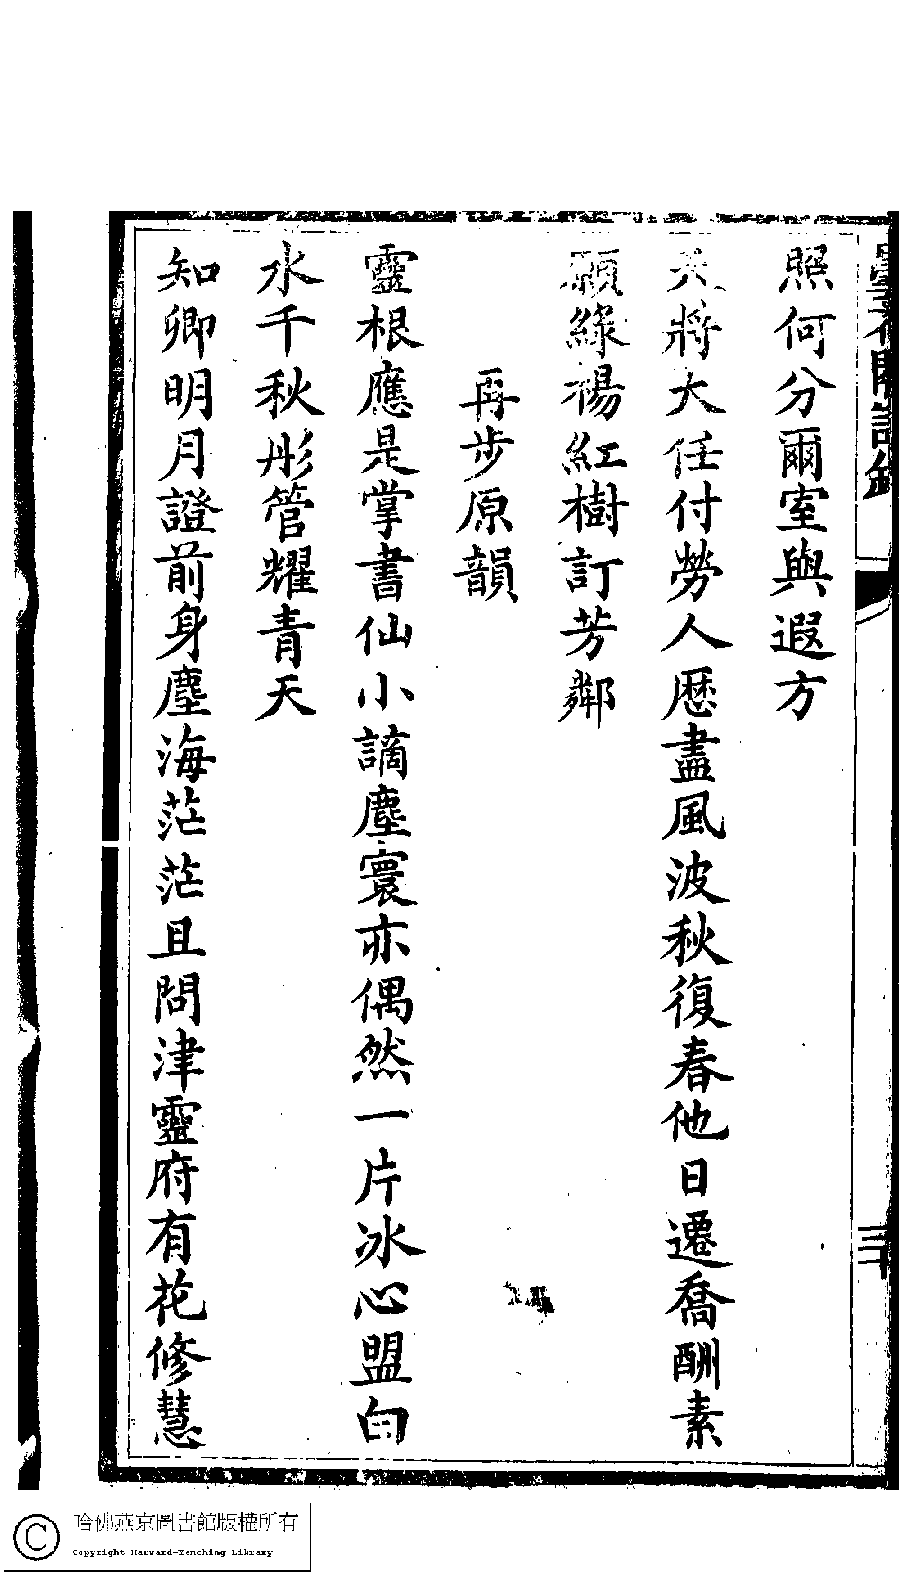 照何分爾室與遐方
天將大任付勞人歴盡風波秋復春他日遷喬酬素
願綠楊紅樹訂芳鄰
再步原韻
靈根應是掌書仙小謫塵寰亦偶然一片冰心盟白
水千秋彤管耀青天
知卿明月證前身塵海茫茫且問津靈府有花修慧
哈佛燕京圖書館版權所有
Copyright Harvard-Yenching Library